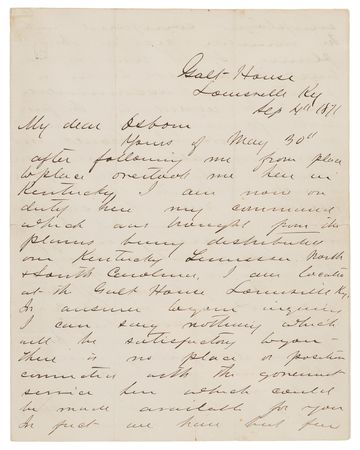 Galt House
Louisville Ky
Sep 4th 1871
My dear Osborn
Yours of May 30th
after following me from place
to place overtook me here in
Kentucky. I am now on
duty here my command
which was brought from the
plains being distributed
over Kentucky Tennessee North
& South Carolina. I am located
at the Galt House Louisville Ky.
In answer to your inquiry
I can say nothing which
will be satisfactory to you—
there is no place or position
connected with the government
service here which could
be made available for you
In fact we have but few